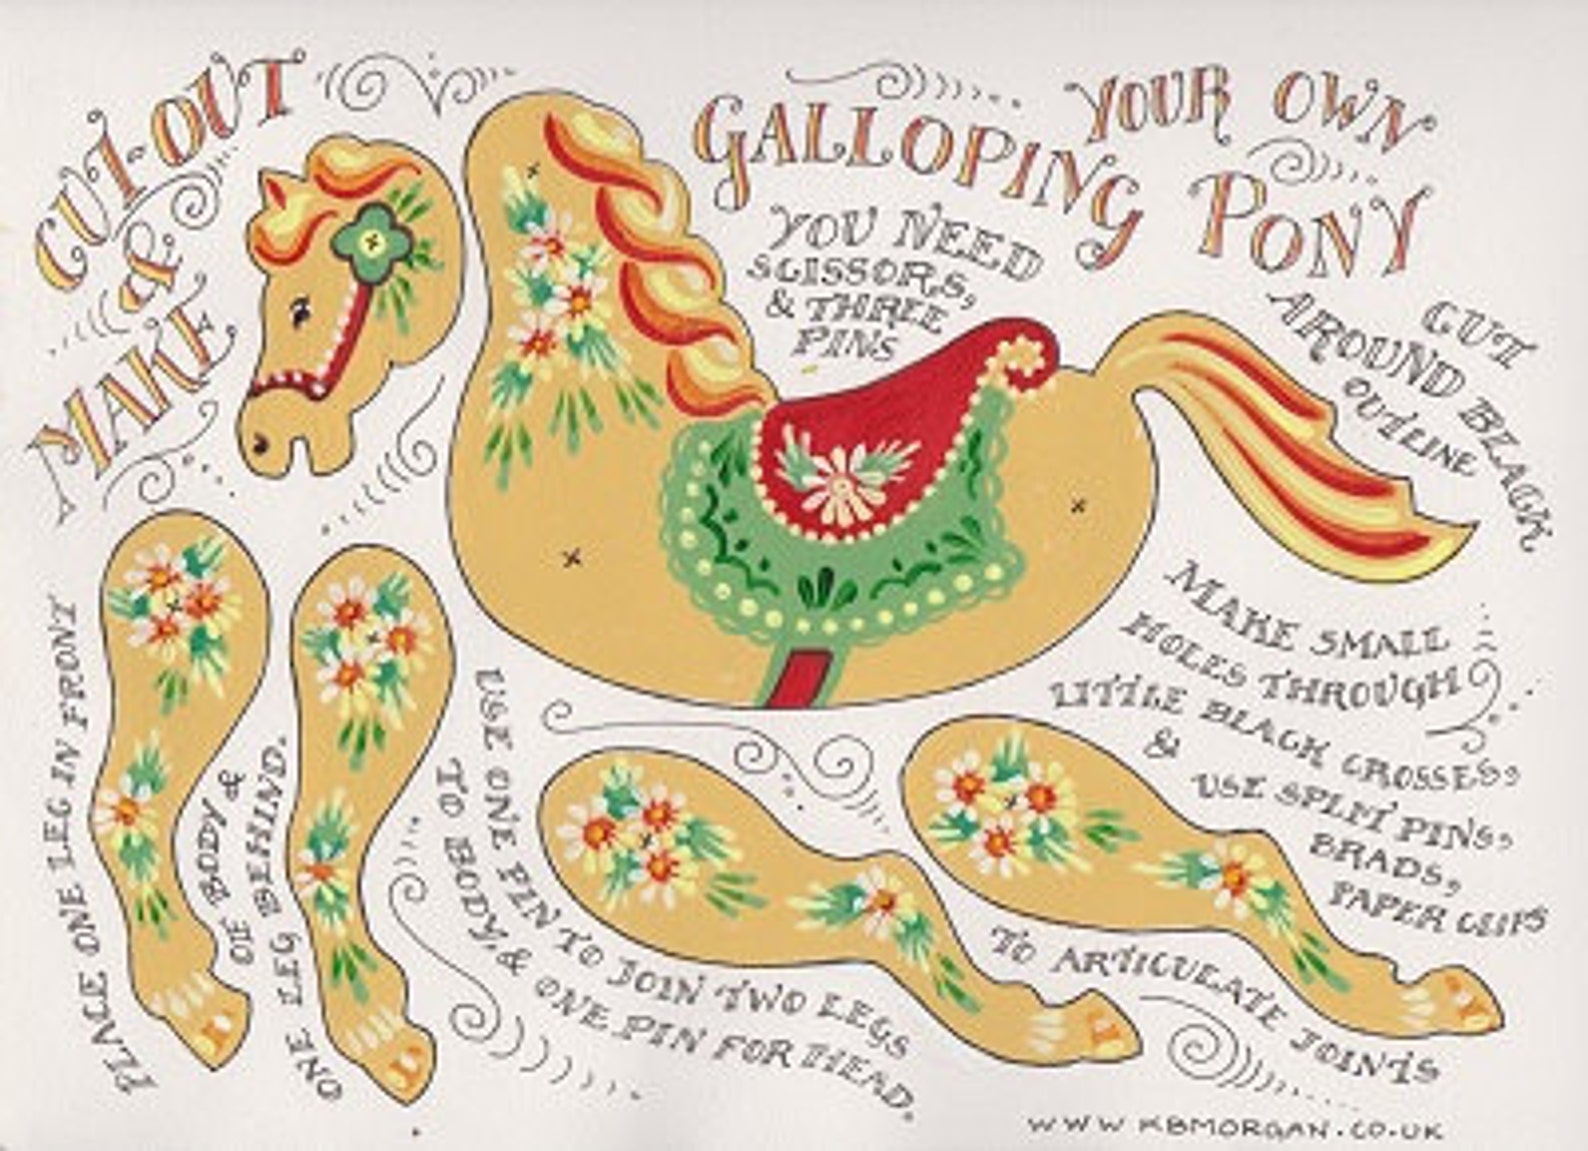 CUT-OUT
&
MAKE
YOUR OWN
GALLOPING PONY
YOU NEED
SCISSORS,
& THREE
PINS
CUT
AROUND BLACK
OUTLINE
MAKE SMALL
HOLES THROUGH
LITTLE BLACK CROSSES,
& USE SPLIT PINS,
BRADS,
PAPER CLIPS
TO ARTICULATE JOINTS
PLACE ONE LEG IN FRONT
OF BODY &
ONE LEG BEHIND.
USE ONE PIN TO JOIN TWO LEGS
TO BODY, & ONE PIN FOR HEAD.
WWW KBMORGAN.CO.UK